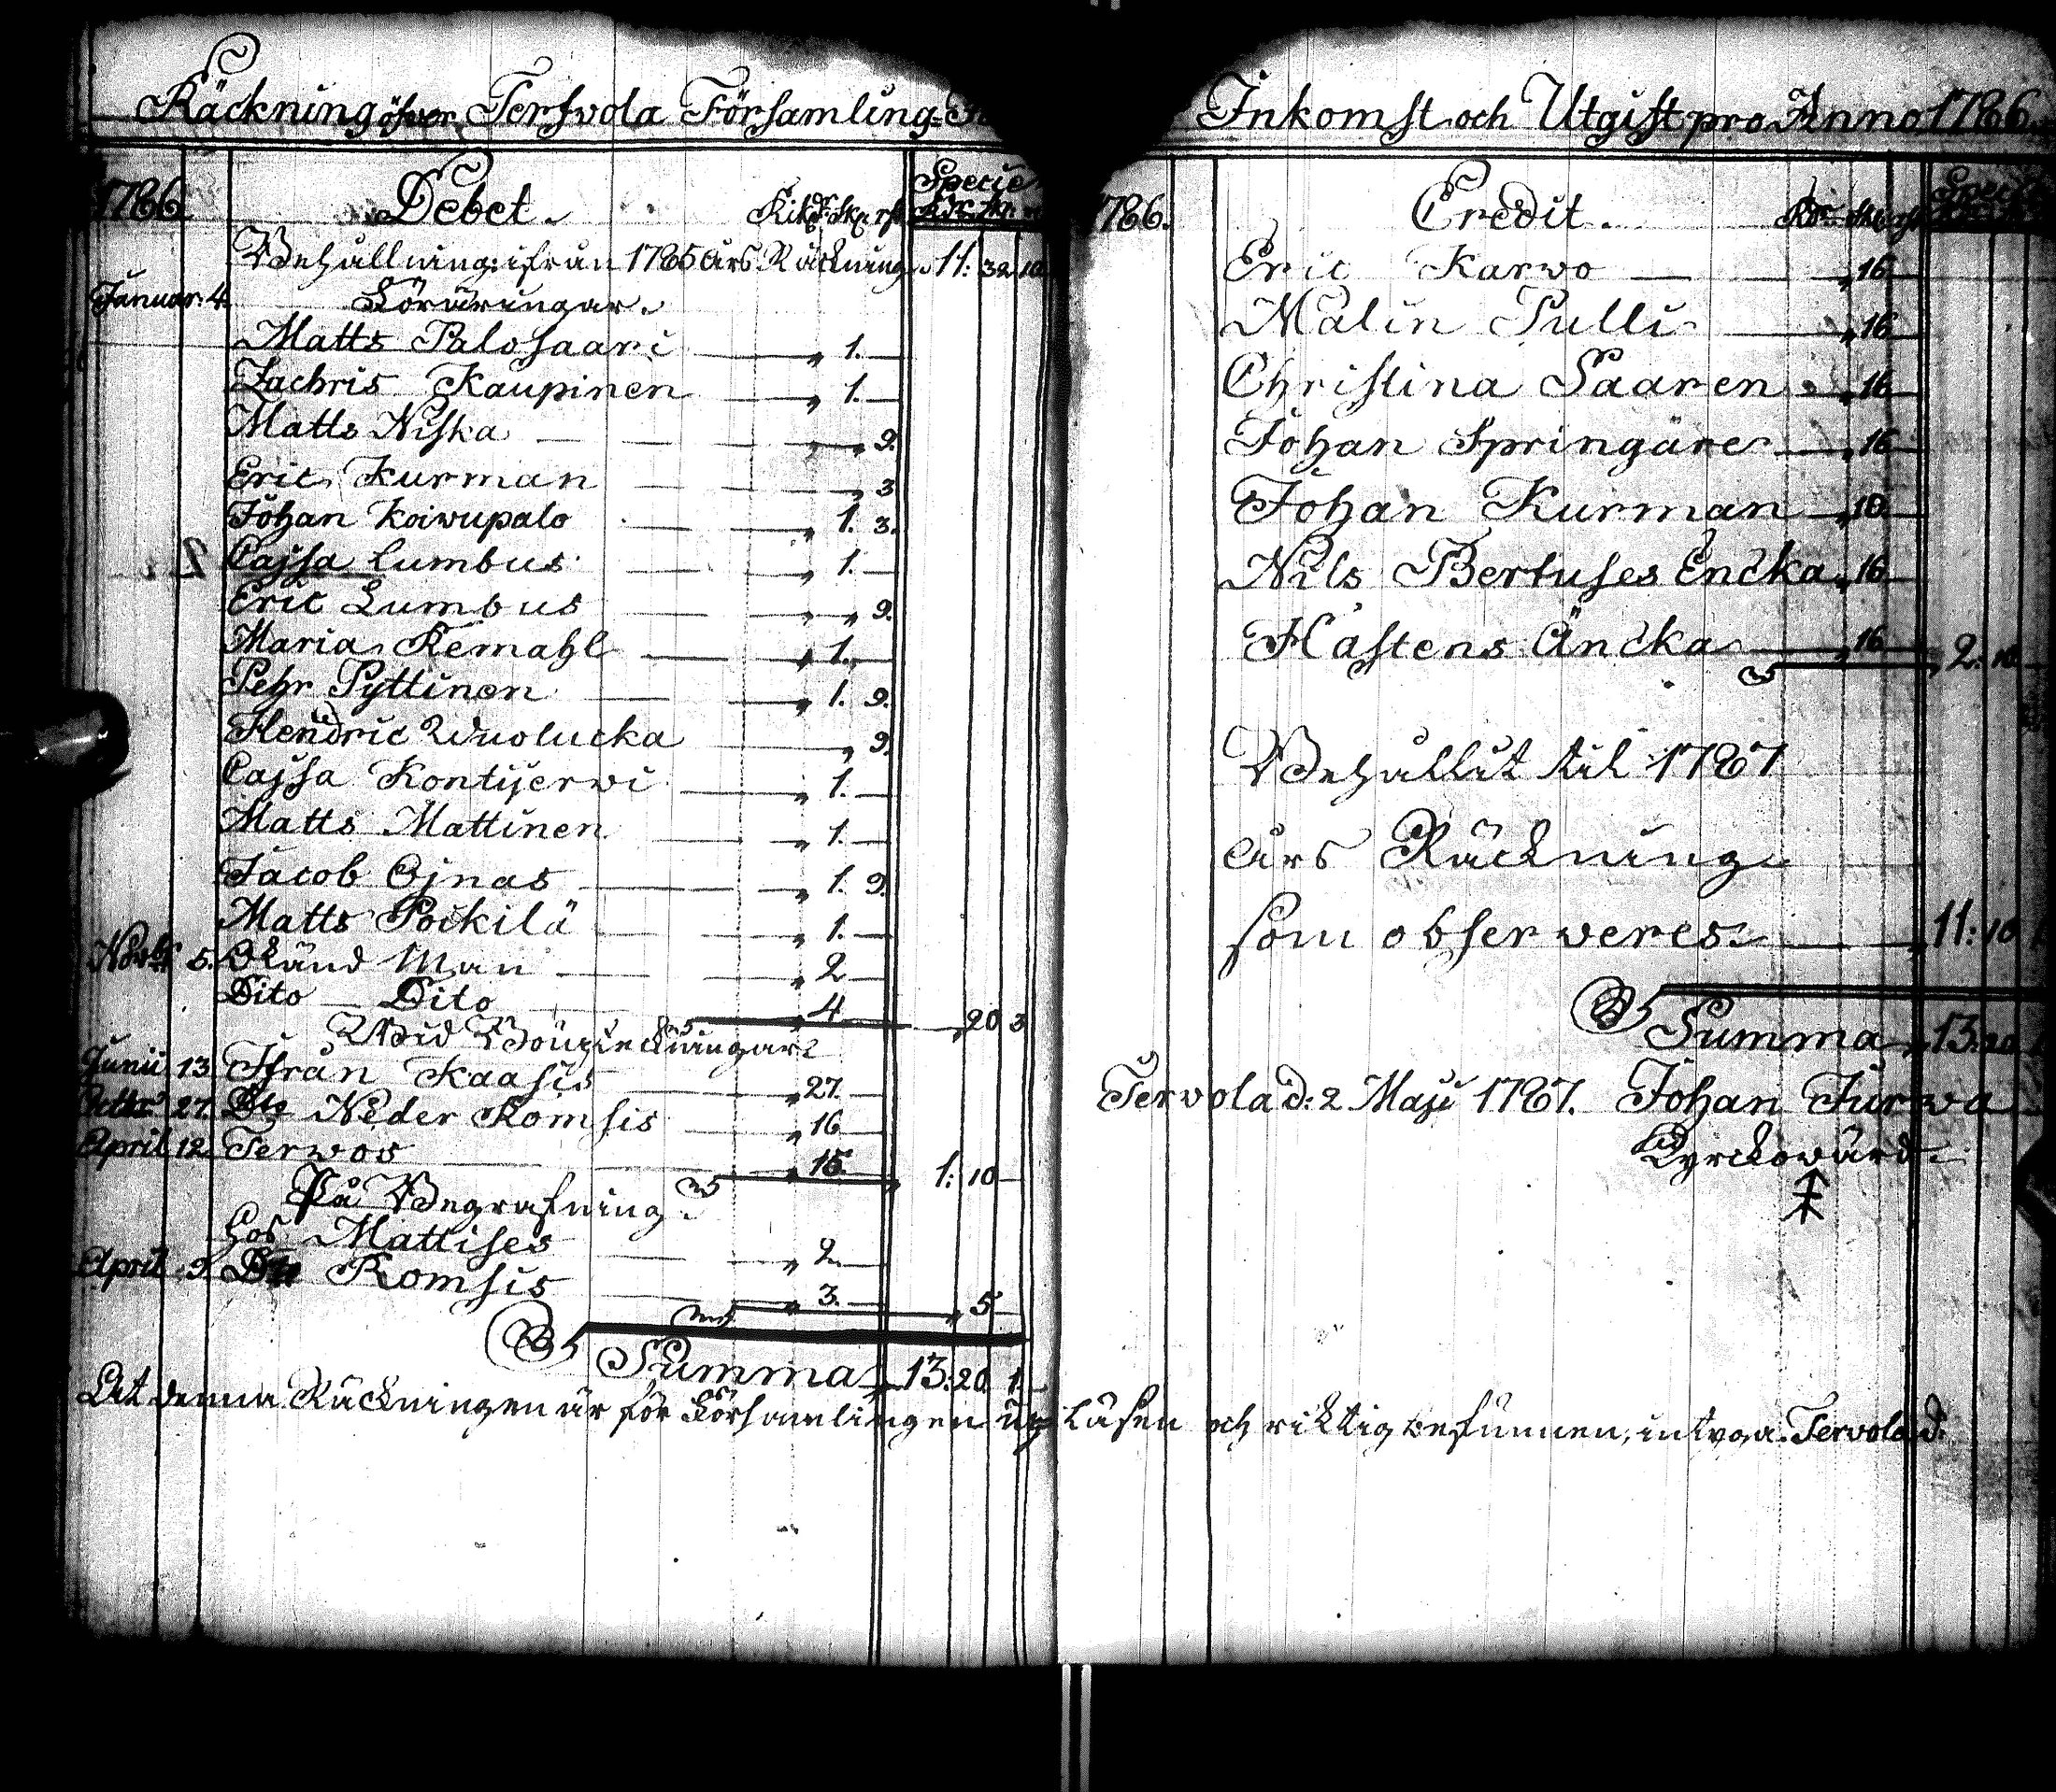 Räckning öfver Terfvola Församling-
1786 Debet. Rikd. Sk. rst. Specie Rdr. Sk. r
Behållning ifrån 1785 Års Räckning 11: 32 10
Januar: 4. Föräringar.
Matts Palosaari — „ 1. —
Zachris Kaupinen — „ 1. —
Matts Niska — „ „ 9.
Eric Kurman — „ 3
Johan Koiwupalo — „ 1. 3.
Cajsa Lumbus — „ 1. —
Eric Lumbus — „ „ 9.
Maria Kemahl — „ 1. —
Pehr Pyttinen — „ 1. 9.
Hendric Wuolucka — „ 9.
Cajsa Kontijerwi — „ 1. —
Matts Mattinen — „ 1. —
Jacob Ojnas — „ 1. 9.
Matts Pockilä — „ 1. —
Novbr 5. Okänd Man — „ 2 —
Dito — Dito — „ 4 — „ 20 3
Wid
Junii 13. Ifrån Kaasis — „ 27. —
Octbr 27. Dto Neder Romsis — „ 16 —
April 12. Terwos — „ 15. — 1: 10 —
På Begrafning.
hos Mattises — „ 2. —
April 9. Dto Romsis — „ 3. — „ 5 —
Summa 13: 20. 1.
At denna Räckningen är för Församlingen up
Inkomst och Utgift pro Anno 1786.
1786. Credit. Rdr. Sk. rst. Specie
Eric Karwo — „ 16 —
Malin Pulli — „ 16 —
Christina Saaren — „ 16 —
Johan Springare — „ 16 —
Johan Kurman — „ 10. —
Nils Bertuses Encka „ 16 —
Hastens Äncka — „ 16 — „ 2: 10.
Behållit til 1787
Års Räckning
som observeres — „ 11: 10
Summa „ 13: 20
Tervola d: 2 Maji 1787. Johan Turwa
Kyrckowärd.
läsen och riktig befunnen, intyga. Tervola d: